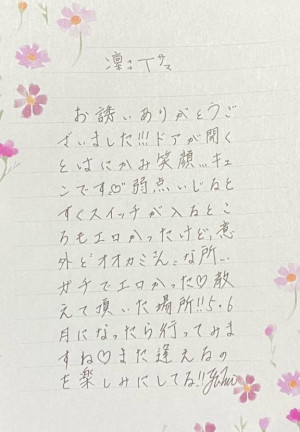 凛々Tサマ
お誘いありがとうご
ざいました!!!ドアが開く
とはにかみ笑顔…キュ
ンです♡弱点いじると
すぐスイッチが入るとこ
ろもエロかったけど、意
外と"オオカミさん"な所…
ガチでエロかった♡教
えて頂いた場所!!5・6
月になったら行ってみま
すね♡また逢えるの
を楽しみにしてる!!